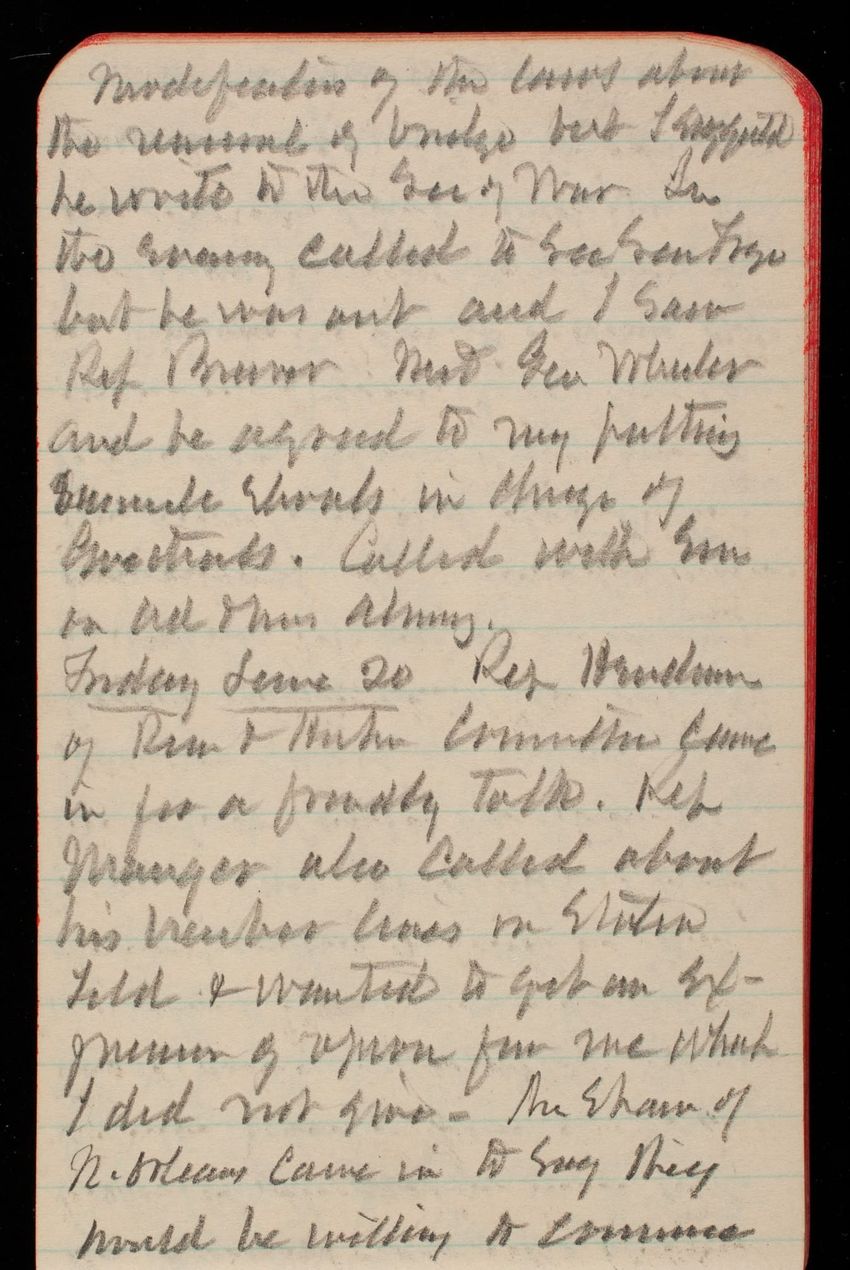 Modification of the laws about
the removal of bridge but I suggested
he write to the Sec of War In
the evening called to see Gen
but he was out and I saw
Rep Brewer Met Gen Wheeler
and he agreed to my putting
in charge of
Called with Em
on
Friday June 20 Rep Henderson
of Riv & Harbor Committee came
in for a friendly talk. Rep
also called about
his Harbor lines on Staten
Isld & wanted to get an ex-
pression of opinion from me which
I did not give - Mr Shaw of
N. Orleans came in to say they
would be willing to commence